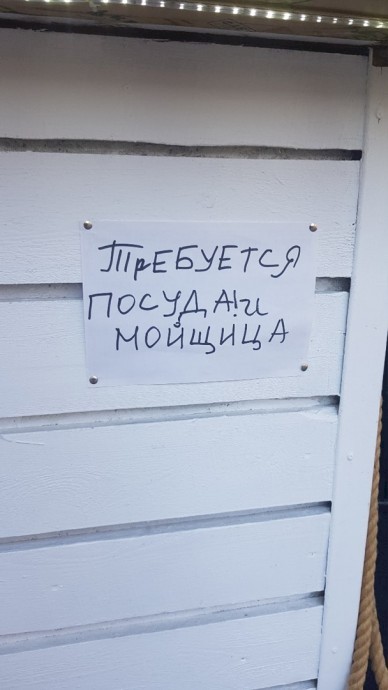 ТрЕБУЕТСЯ
ПОСУДА!и
МОЙЩИЦА